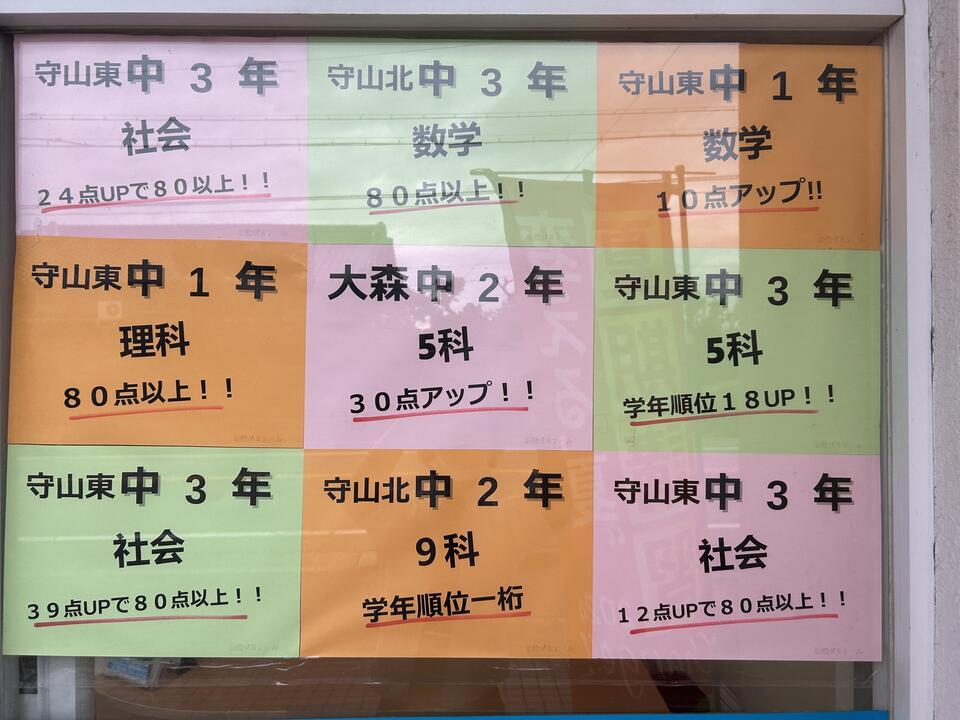 守山東中 3 年
社会
24点UPで80以上！！
守山北中 3 年
数学
80点以上！！
守山東中 1 年
数学
10点アップ!!
守山東中 1 年
理科
80点以上！！
大森中 2 年
5科
30点アップ！！
守山東中 3 年
5科
学年順位18UP！！
守山東中 3 年
社会
39点UPで80点以上！！
守山北中 2 年
9科
学年順位一桁
守山東中 3 年
社会
12点UPで80点以上！！